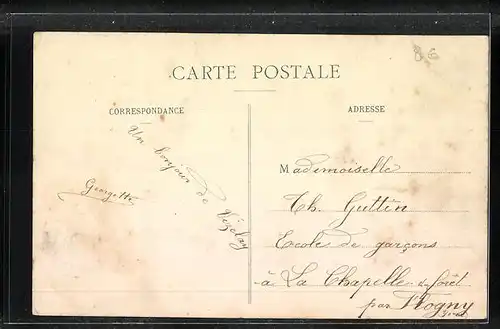 8 €
CARTE POSTALE
CORRESPONDANCE
ADRESSE
Un bonjour de Vézelay
Georgette
Mademoiselle
Th. Guttin
Ecole de garçons
à La Chapelle s. forêt
par Flogny